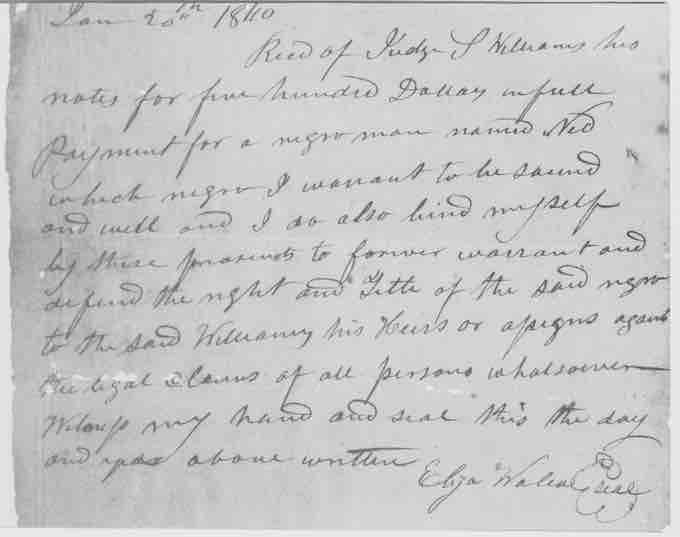 Jan 20th 1840
Recd of Judge S Williams his
notes for five hundred Dollars in full
Payment for a negro man named Ned
which negro I warrant to be sound
and well and I do also bind myself
by these presents to forever warrant and
defend the right and Title of the said negro
to the said Williams his Heirs or assigns against
the legal Claims of all persons whatsoever
Witness my hand and seal this the day
and year above written
Eliza seal